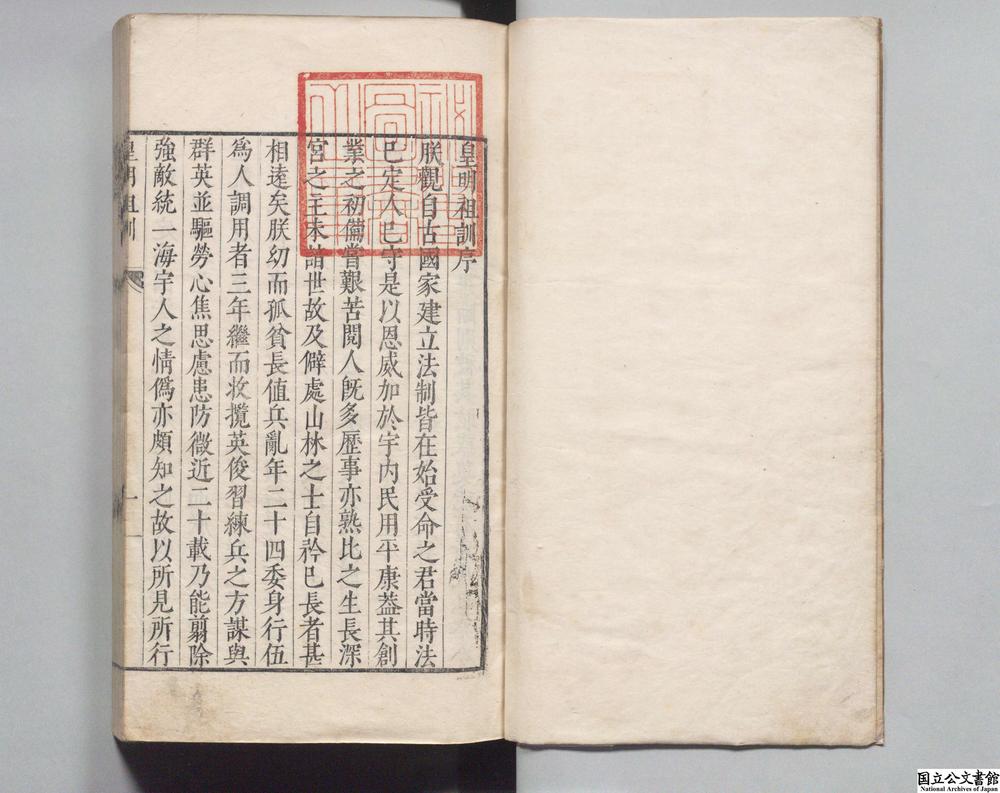 皇明祖訓序
朕觀自古國家建立法制皆在始受命之君當時法
已定人已守是以恩威加於宇內民用平康葢其創
業之初備嘗艱苦閱人旣多歷事亦熟比之生長深
宮之主未諳世故及僻處山林之士自矜已長者甚
相遠矣朕幼而孤貧長值兵亂年二十四委身行伍
爲人調用者三年繼而收攬英俊習練兵之方謀與
群英並驅勞心焦思慮患防微近二十載乃能翦除
強敵統一海宇人之情僞亦頗知之故以所見所行
皇明祖訓
一
国立公文書館
National Archives of Japan